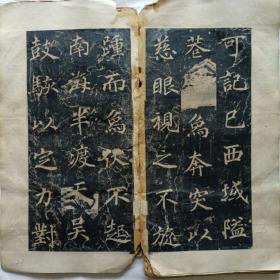 可記已西域隘
苍爲奔突以
慈眼視之不旋
踵而爲伏不起
南海半渡天吳
鼓駭以定力對